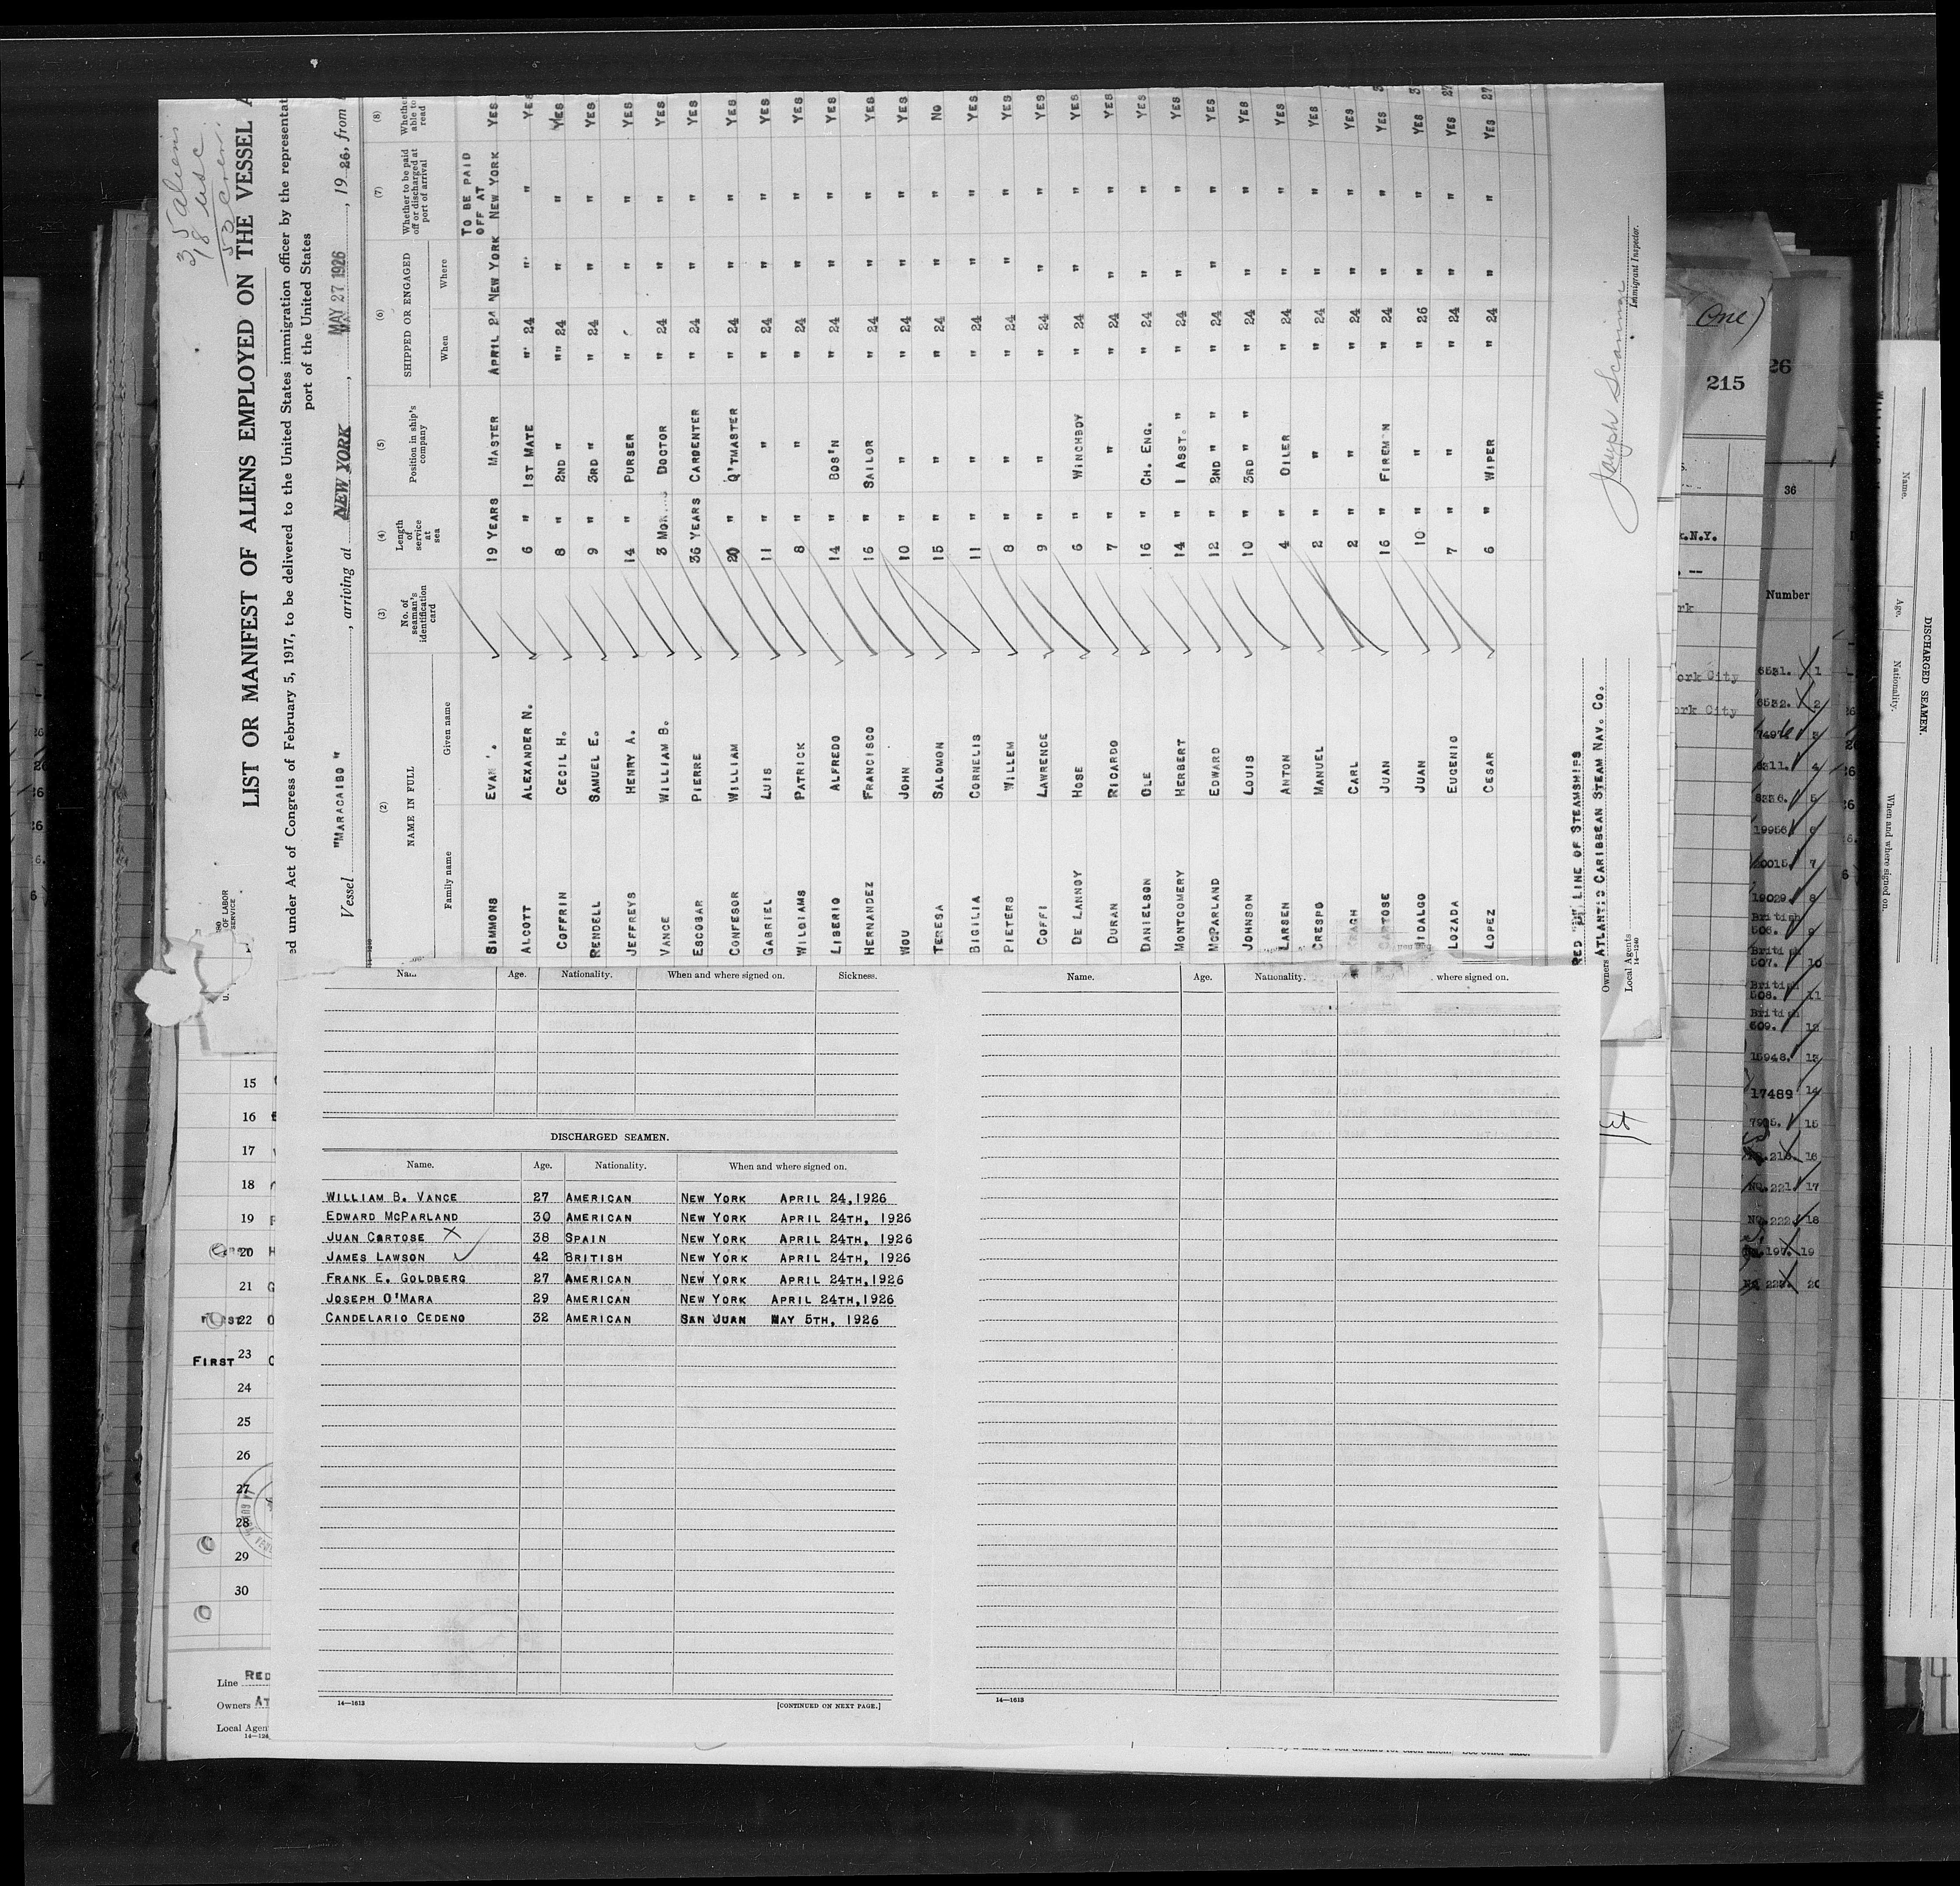 35 aliens
18 usc
53 crew
LIST OR MANIFEST OF ALIENS EMPLOYED ON THE VESSEL A
ed under Act of Congress of February 5, 1917, to be delivered to the United States immigration officer by the representat
port of the United States
Vessel "MARACAIBO", arriving at NEW YORK, MAY 27 1926, 1926, from
(2) (3) (4) (5) (6) (7) (8)
NAME IN FULL No. of seaman's identification card Length of service at sea Position in ship's company SHIPPED OR ENGAGED Whether to be paid off or discharged at port of arrival Whether able to read
Family name Given name When Where
TO BE PAID OFF AT
SIMMONS EVAN 19 YEARS MASTER APRIL 24 NEW YORK NEW YORK YES
ALCOTT ALEXANDER N. 6 " 1ST MATE " 24 " " YES
COFFRIN CECIL H. 8 " 2ND " "" 24 " " YES
RENDELL SAMUEL E. 9 " 3RD " " 24 " " YES
JEFFREYS HENRY A. 14 " PURSER " " " YES
VANCE WILLIAM B. 3 DOCTOR " 24 " " YES
ESCOBAR PIERRE 36 YEARS CARPENTER " 24 " " YES
CONFESOR WILLIAM 20 " Q'TMASTER " 24 " " YES
GABRIEL LUIS 11 " " " 24 " " YES
WILLIAMS PATRICK 8 " " " 24 " " YES
LIBERIO ALFREDO 14 " BOS'N " 24 " " YES
HERNANDEZ FRANCISCO 16 " SAILOR " 24 " " YES
WOU JOHN 10 " " " 24 " " YES
TERESA SALOMON 15 " " " 24 " " NO
BIGILIA CORNELIS 11 " " " 24 " " YES
PIETERS WILLEM 8 " " " 24 " " YES
COFFI LAWRENCE 9 " " " 24 " " YES
DE LANNOY HOSE 6 " WINCHBOY " 24 " " YES
DURAN RICARDO 7 " " " 24 " " YES
DANIELSON OLE 16 " CH. ENG. " 24 " " YES
MONTGOMERY HERBERT 14 " 1 ASST. " " 24 " " YES
MCPARLAND EDWARD 12 " 2ND " " " 24 " " YES
JOHNSON LOUIS 10 " 3RD " " " 24 " " YES
LARSEN ANTON 4 " OILER " 24 " " YES
CRESPO MANUEL 2 " " " 24 " " YES
CARL 2 " " " 24 " " YES
CARTOSE JUAN 16 " FIREMAN " 24 " " YES
HIDALGO JUAN 10 " " " 26 " " YES
LOZADA EUGENIO 7 " " " 24 " " YES 27
LOPEZ CESAR 6 " WIPER " 24 " " YES 27
RED "D" LINE OF STEAMSHIPS
Owners ATLANTIC CARIBBEAN STEAM NAV. CO.
Local Agents
14—1240
Immigrant Inspector.
Age. Nationality. When and where signed on. Sickness.
DISCHARGED SEAMEN.
Name. Age. Nationality. When and where signed on.
WILLIAM B. VANCE 27 AMERICAN NEW YORK APRIL 24,1926
EDWARD MCPARLAND 30 AMERICAN NEW YORK APRIL 24TH, 1926
JUAN CARTOSE X 38 SPAIN NEW YORK APRIL 24TH, 1926
JAMES LAWSON ✓ 42 BRITISH NEW YORK APRIL 24TH, 1926
FRANK E. GOLDBERG 27 AMERICAN NEW YORK APRIL 24TH,1926
JOSEPH O'MARA 29 AMERICAN NEW YORK APRIL 24TH,1926
CANDELARIO CEDENO 32 AMERICAN SAN JUAN MAY 5TH, 1926
14—1613 [CONTINUED ON NEXT PAGE.]
Name. Age. Nationality. where signed on.
14—1613
15
16
17
18
19
20
21
22
FIRST 23
24
25
26
27
28
29
30
Line RED
Owners AT
Local Agen
One)
215
26
36
k.N.Y.
Number
ork City
ork City
6531. X 1
6532. X 2
3
4
8336. 5
19956 6
7
19029 8
British
506. 9
British
507. 10
British
508. 11
British
509. 12
15948. 13
17489 14
15
16
17
18
19
Name. Age. Nationality. When and where signed on.
DISCHARGED SEAMEN.